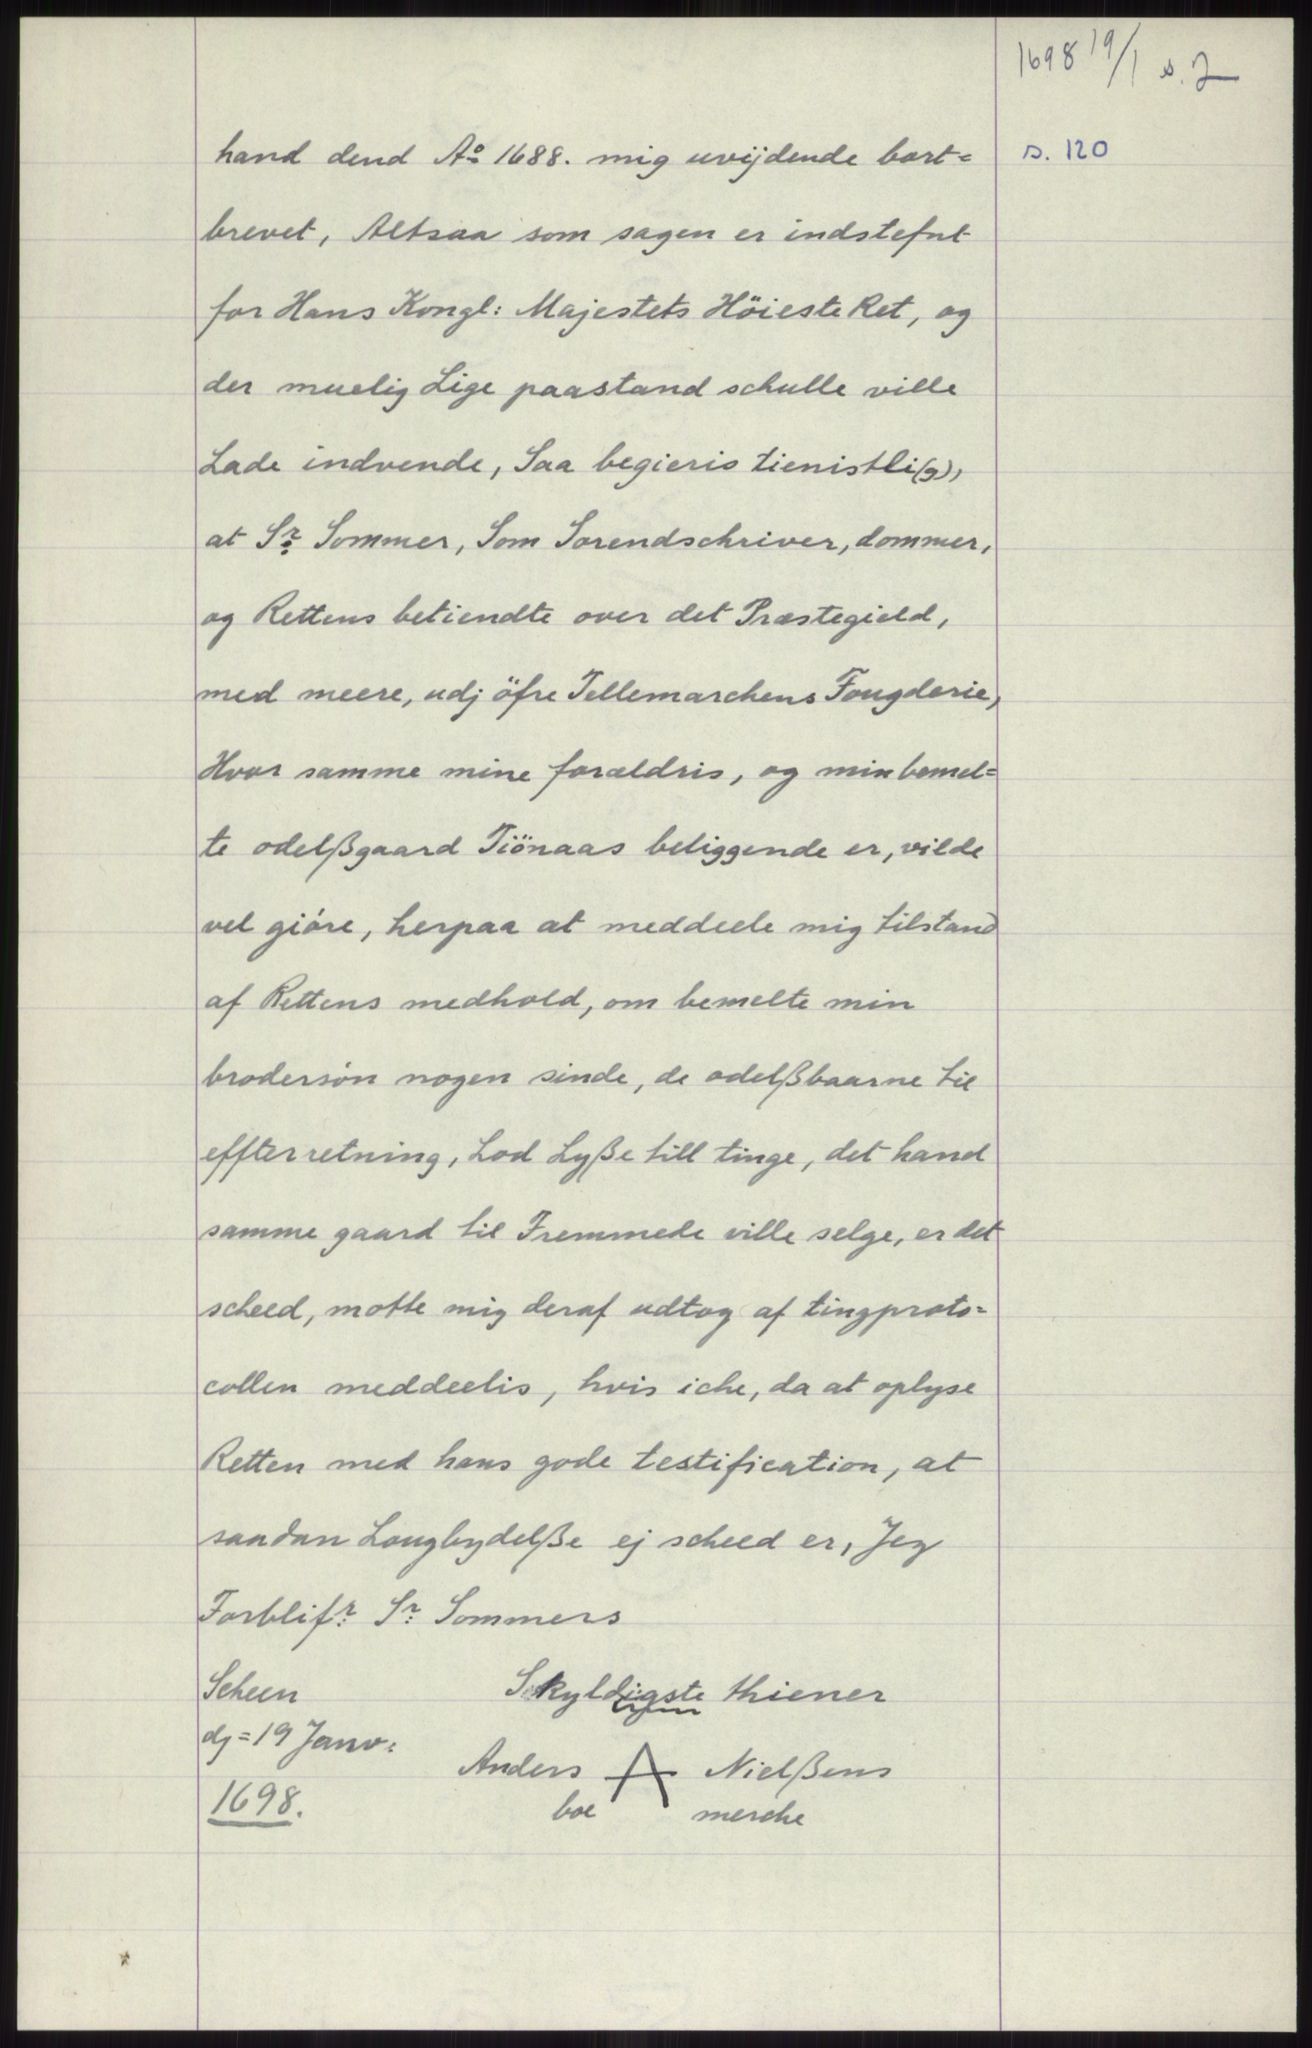 1698 19/1 s. 2
hand dend Aº 1688. mig uvijdende bort=
s. 120
brevet, Altsaa som sagen er indstefnt
for Hans Kongl: Majestets Höieste Ret, og
der muelig Lige paastand schulle ville
Lade indvende, Saa begieris tienistli(g),
at Sr. Sommer, Som Sorendschriver, dommer,
og Rettens betiendte over det Præstegield,
med meere, udj öfre Tellemarchens Fougderie,
Hvor samme mine forældris, og min bemel=
te odelßgaard Tiönaas beliggende er, vilde
vel gióre, herpaa at meddeele mig tilstand
af Rettens medhold, om bemelte min
brodersón nogen sinde, de odelßbaarne til
effterretning, Lod Lyße till tinge, det hand
samme gaard til Fremmede ville selge, er det
scheed, motte mig deraf udtog af tingproto=
collen meddeelis, hvis iche, da at oplyse
Retten med hans gode testification, at
saadan Lougbydelße ej scheed er, Jeg
Forblifr. Sr. Sommers
Scheen Skyldigste thiener
dj = 19 Janv:
Anders A Nielßens
1698. boe merche